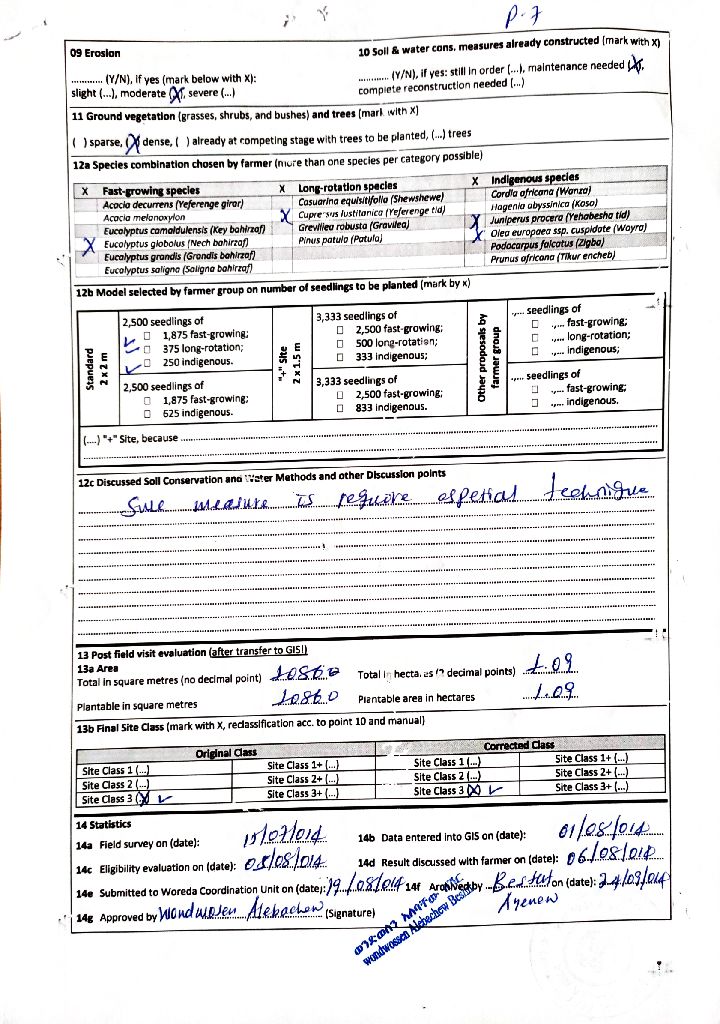 P-7
09 Erosion
............ (Y/N), if yes (mark below with X):
slight (...), moderate (X), severe (...)
10 Soil & water cons. measures already constructed (mark with X)
............ (Y/N), if yes: still in order (...), maintenance needed (X),
complete reconstruction needed (...)
11 Ground vegetation (grasses, shrubs, and bushes) and trees (mark with X)
( ) sparse, (X) dense, ( ) already at competing stage with trees to be planted, (...) trees
12a Species combination chosen by farmer (more than one species per category possible)
X Fast-growing species X Long-rotation species X Indigenous species
Acacia decurrens (Yeferenge girar) Casuarina equisitifolia (Shewshewe) Cordia africana (Wanza)
Acacia melanoxylon X Cupressus lustitanica (Yeferenge tid) Hagenia abyssinica (Koso)
Eucalyptus camaldulensis (Key bahirzaf) Grevillea robusta (Gravilea) X Juniperus procera (Yehabesha tid)
X Eucalyptus globolus (Nech bahirzaf) Pinus patula (Patula) X Olea europaea ssp. cuspidate (Wayra)
Eucalyptus grandis (Grandis bahirzaf) Podocarpus falcatus (Zigba)
Eucalyptus saligna (Saligna bahirzaf) Prunus africana (Tikur encheb)
12b Model selected by farmer group on number of seedlings to be planted (mark by x)
Standard
2 x 2 m
2,500 seedlings of
✓ □ 1,875 fast-growing;
✓ □ 375 long-rotation;
✓ □ 250 indigenous.
2,500 seedlings of
□ 1,875 fast-growing;
□ 625 indigenous.
"+" Site
2 x 1.5 m
3,333 seedlings of
□ 2,500 fast-growing;
□ 500 long-rotation;
□ 333 indigenous;
3,333 seedlings of
□ 2,500 fast-growing;
□ 833 indigenous.
Other proposals by
farmer group
.,... seedlings of
□ .,... fast-growing;
□ .,... long-rotation;
□ .,... indigenous;
.,... seedlings of
□ .,... fast-growing;
□ .,... indigenous.
(....) "+" Site, because
12c Discussed Soil Conservation and Water Methods and other Discussion points
Sure measure is requore aspesial technique
13 Post field visit evaluation (after transfer to GIS!)
13a Area
Total in square metres (no decimal point) 10860 Total in hectares (2 decimal points) 1.09
Plantable in square metres 10860 Plantable area in hectares 1.09
13b Final Site Class (mark with X, reclassification acc. to point 10 and manual)
Original Class Corrected Class
Site Class 1 (...) Site Class 1+ (...) Site Class 1 (...) Site Class 1+ (...)
Site Class 2 (...) Site Class 2+ (...) Site Class 2 (...) Site Class 2+ (...)
Site Class 3 (X) ✓ Site Class 3+ (...) Site Class 3 (X) ✓ Site Class 3+ (...)
14 Statistics
14a Field survey on (date): 15/07/014 14b Data entered into GIS on (date): 01/08/014
14c Eligibility evaluation on (date): 05/08/014 14d Result discussed with farmer on (date): 06/08/014
14e Submitted to Woreda Coordination Unit on (date): 19/08/014 14f Archived by Bestut Ayenew on (date): 24/09/014
14g Approved by Wondwosen Alebachew (Signature)
ወንድወሰን አለባቸው
Wondwossen Alebachew